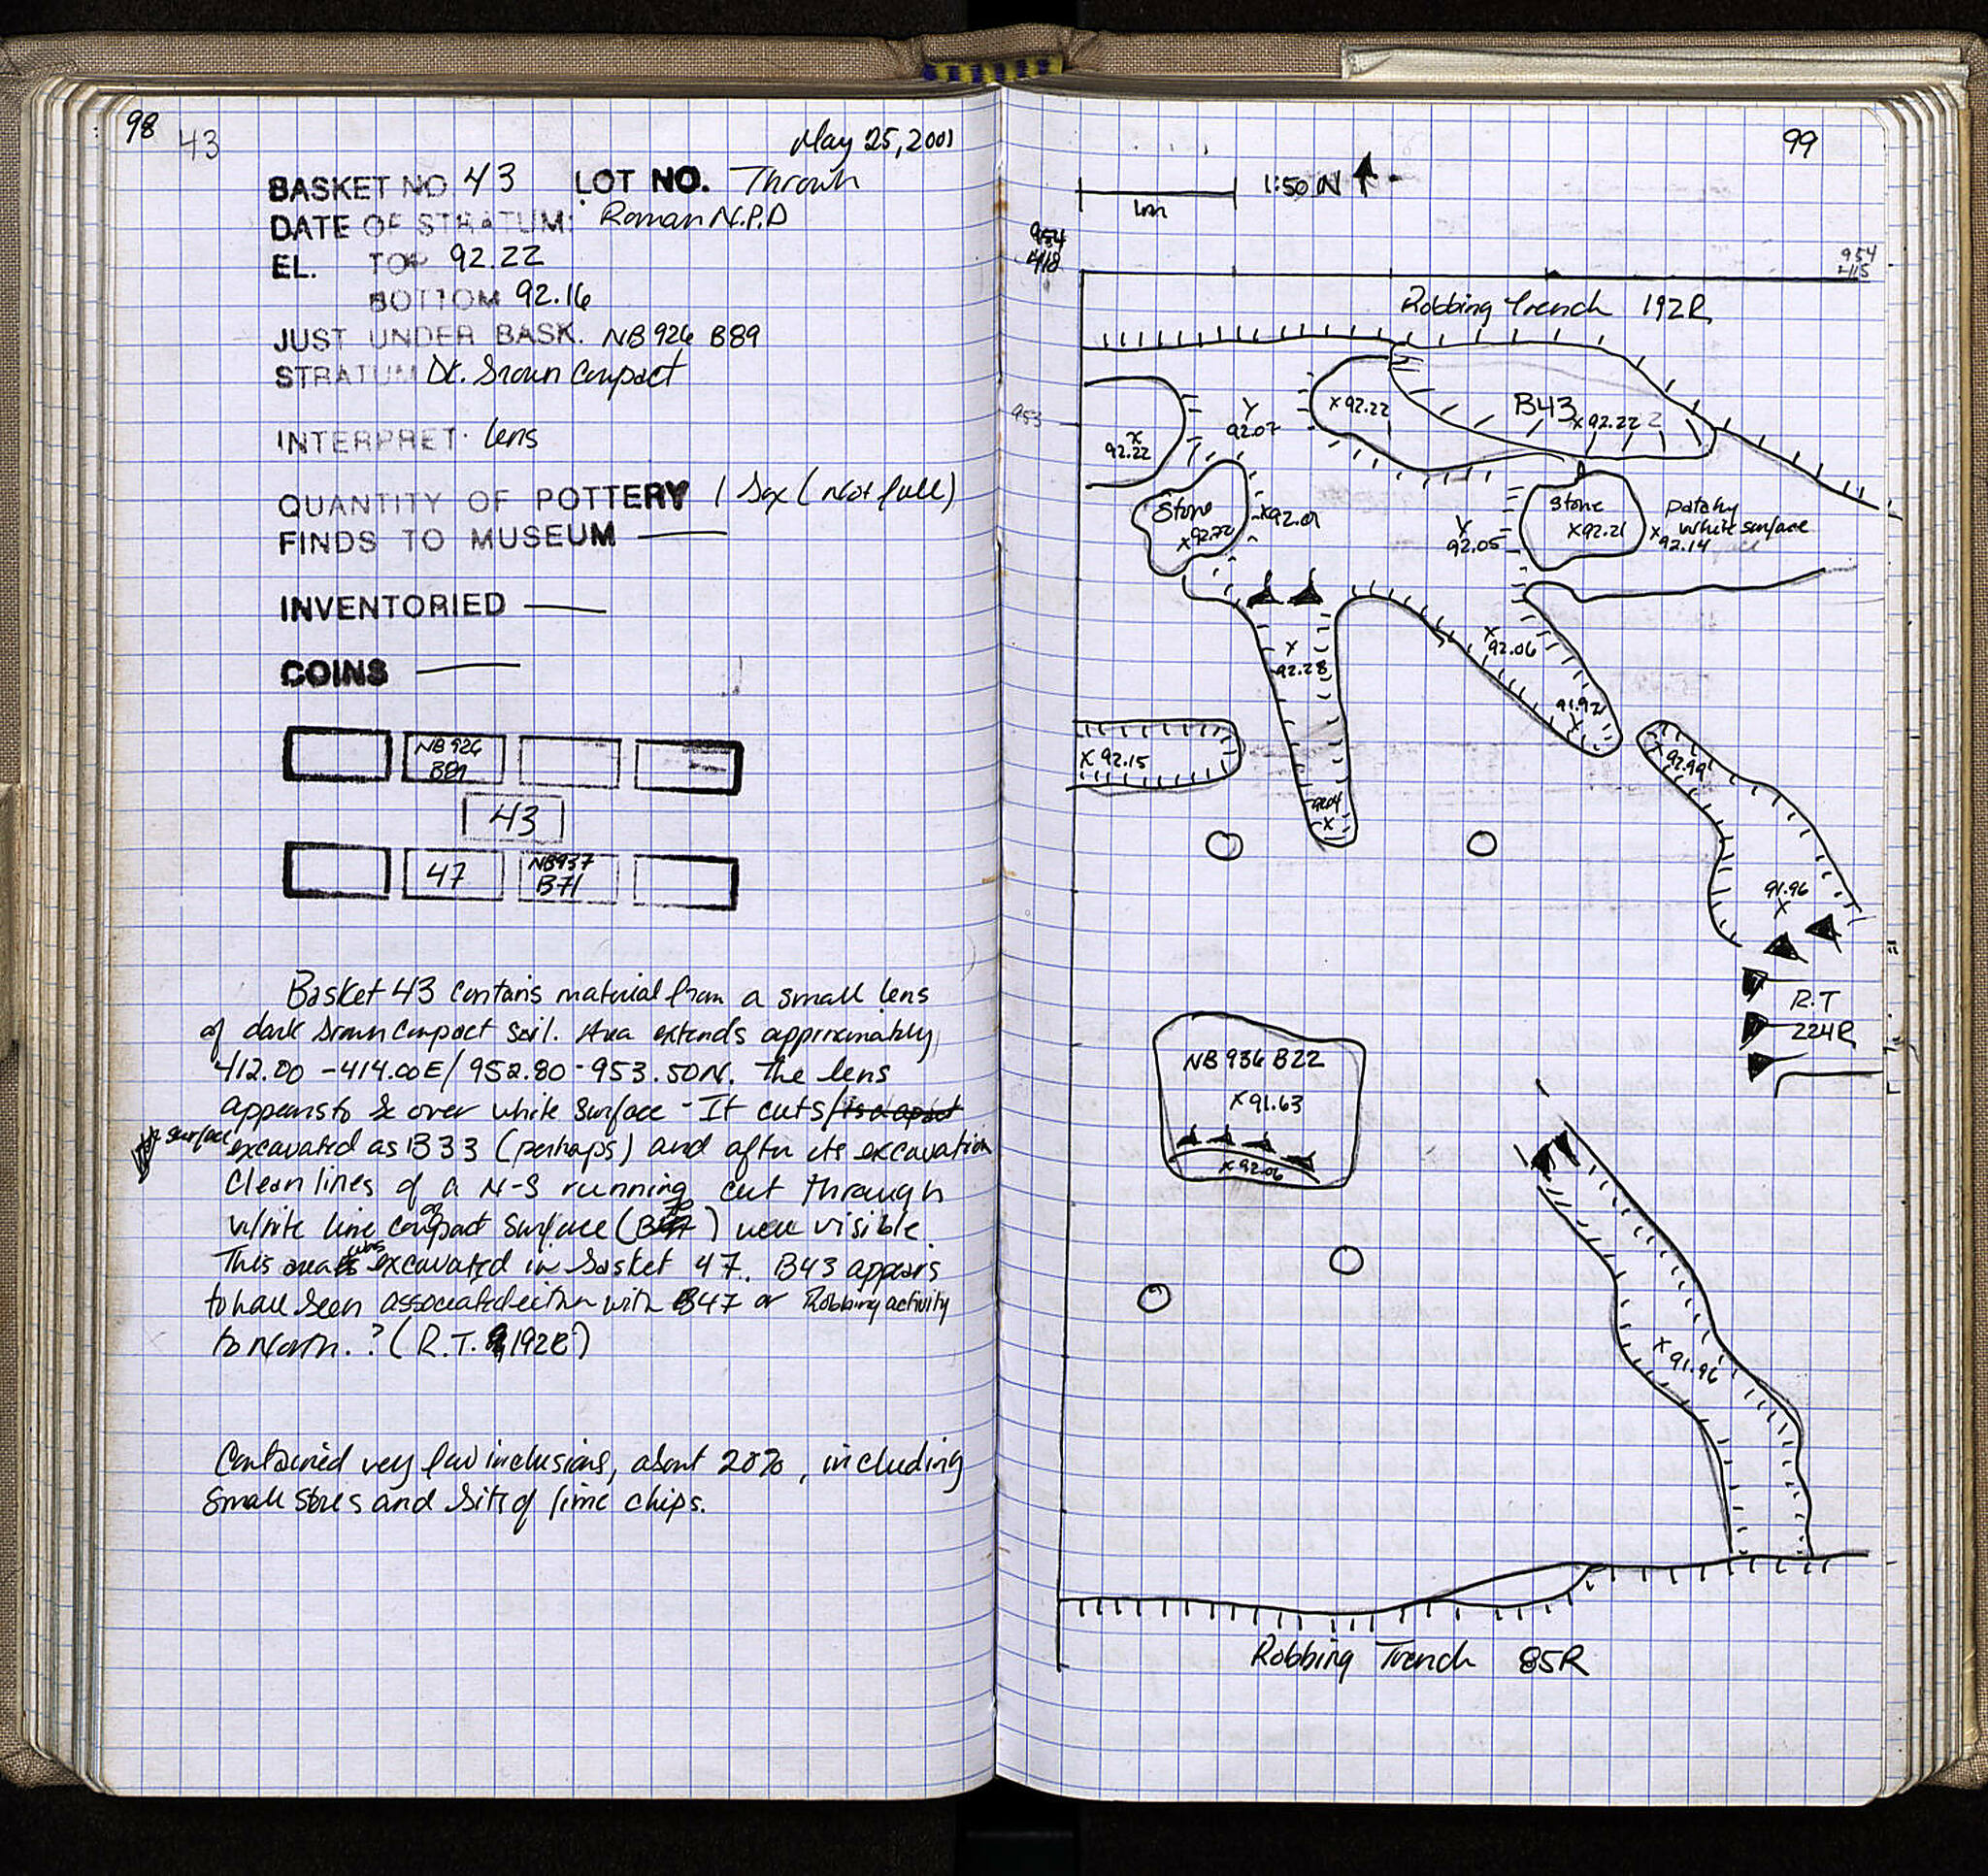 98
43
May 25, 2001
BASKET NO 43 LOT NO. Thrown
DATE OF STRATUM: Roman N.P.D
EL. TOP 92.22
BOTTOM 92.16
JUST UNDER BASK. NB 926 B89
STRATUM Dk. Brown Compact
INTERPRET. lens
QUANTITY OF POTTERY 1 Box (Not full)
FINDS TO MUSEUM —
INVENTORIED —
COINS —
NB 926
B89
43
47
NB937
B71
Basket 43 contains material from a small lens
of dark brown compact soil. Area extends approximately
412.00 - 414.00E / 952.80 - 953.50N. The lens
appears to be over white surface - It cuts
surface excavated as B33 (perhaps) and after its excavation
Clean lines of a N-S running cut through
white lime compact surface ( ) were visible.
This area was excavated in basket 47. B43 appears
to have been associated either with B47 or Robbing activity
to North. ? (R.T. 192R)
Contained very few inclusions, about 20%, including
small stones and bits of lime chips.
99
1:50 N
1m
954
418
954
415
Robbing Trench 192R
953
X 92.22
Y
92.07
X 92.22
B43
X 92.22
Stone
X 92.22
X 92.01
Y
92.05
Stone
X 92.21
patchy
white surface
X 92.14
X
92.28
X
92.06
91.92
X
X 92.15
X
X
91.96
X
R.T
224R
NB 936 B22
X 91.63
X 92.06
X 91.96
Robbing Trench 85R